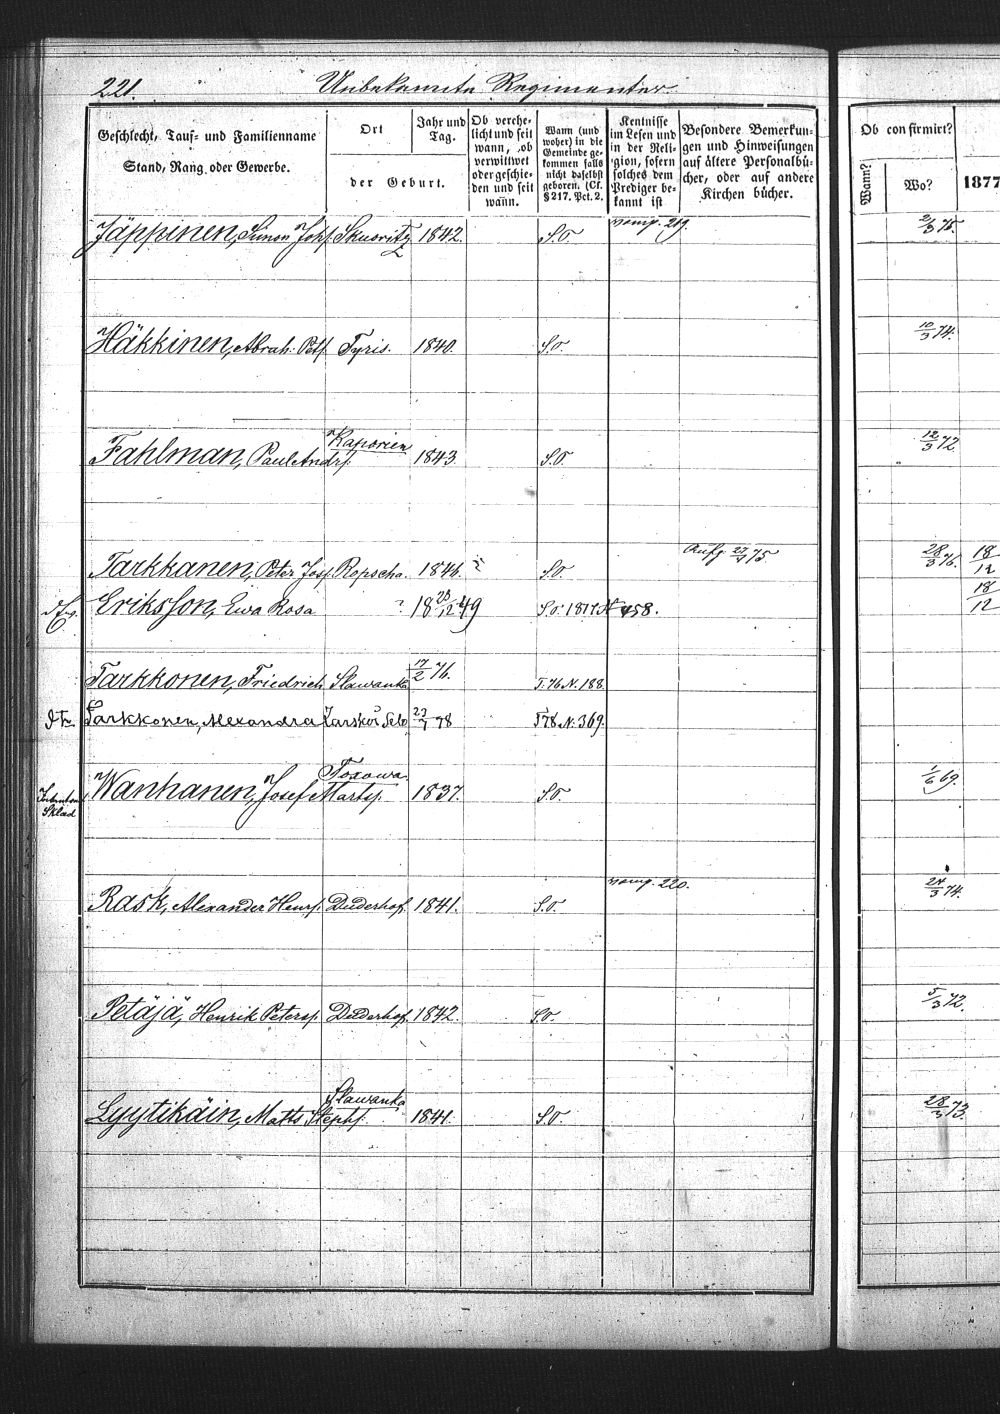 221. Unbekannte Regimenter.
Geschlecht, Tauf- und Familienname
Stand, Rang, oder Gewerbe.
Ort
der Geburt.
Jahr und
Tag.
Ob verehe-
licht und seit
wann, ob
verwittwet
oder geschie-
den und seit
wann.
Wann (und
woher) in die
Gemeinde ge-
kommen falls
nicht daselbst
geboren. (Cf.
§ 217. Pct. 2.
Kentnisse
im Lesen und
in der Reli-
gion, sofern
solches dem
Prediger be-
kannt ist
Besondere Bemerkun-
gen und Hinweisungen
auf ältere Personalbü-
cher, oder auf andere
Kirchen bücher.
Ob confirmirt?
Wann?
Wo?
1877
Jäppinen, Simon Johs. Skuoritz 1842. S.O. 219. 2/3 75.
Häkkinen, Abrah. Pets. Tyris. 1840. S.O. 10/3 74.
Kaporien
Fahlman, Paul Andrs. 1843. S.O. 12/3 72.
Aufg. 27/4 75.
Tarkkanen, Peter Joss. Ropscha. 1846. S.O. 28/3 76. 18/12
Eriksson, Ewa Rosa ? 18 28/12 49 S.O. 1877 N 458. 18/12
Tarkkonen, Friedrich Slawanka 17/2 76. T. 76 N. 188.
Tarkkonen, Alexandra Zarskoi Selo 23/7 78 T 78 N. 369.
Toxowa
Wanhanen, Josef Marts. 1837. S.O. 1/6 69.
Sklad
220.
Rask, Alexander Henrs. Duderhof 1841. S.O. 24/3 74.
Petäjä, Henrik Peters. Duderhof. 1842. S.O. 5/3 72.
Slawanka
Lyytikäin, Matts Stephs. 1841. S.O. 28/3 73.